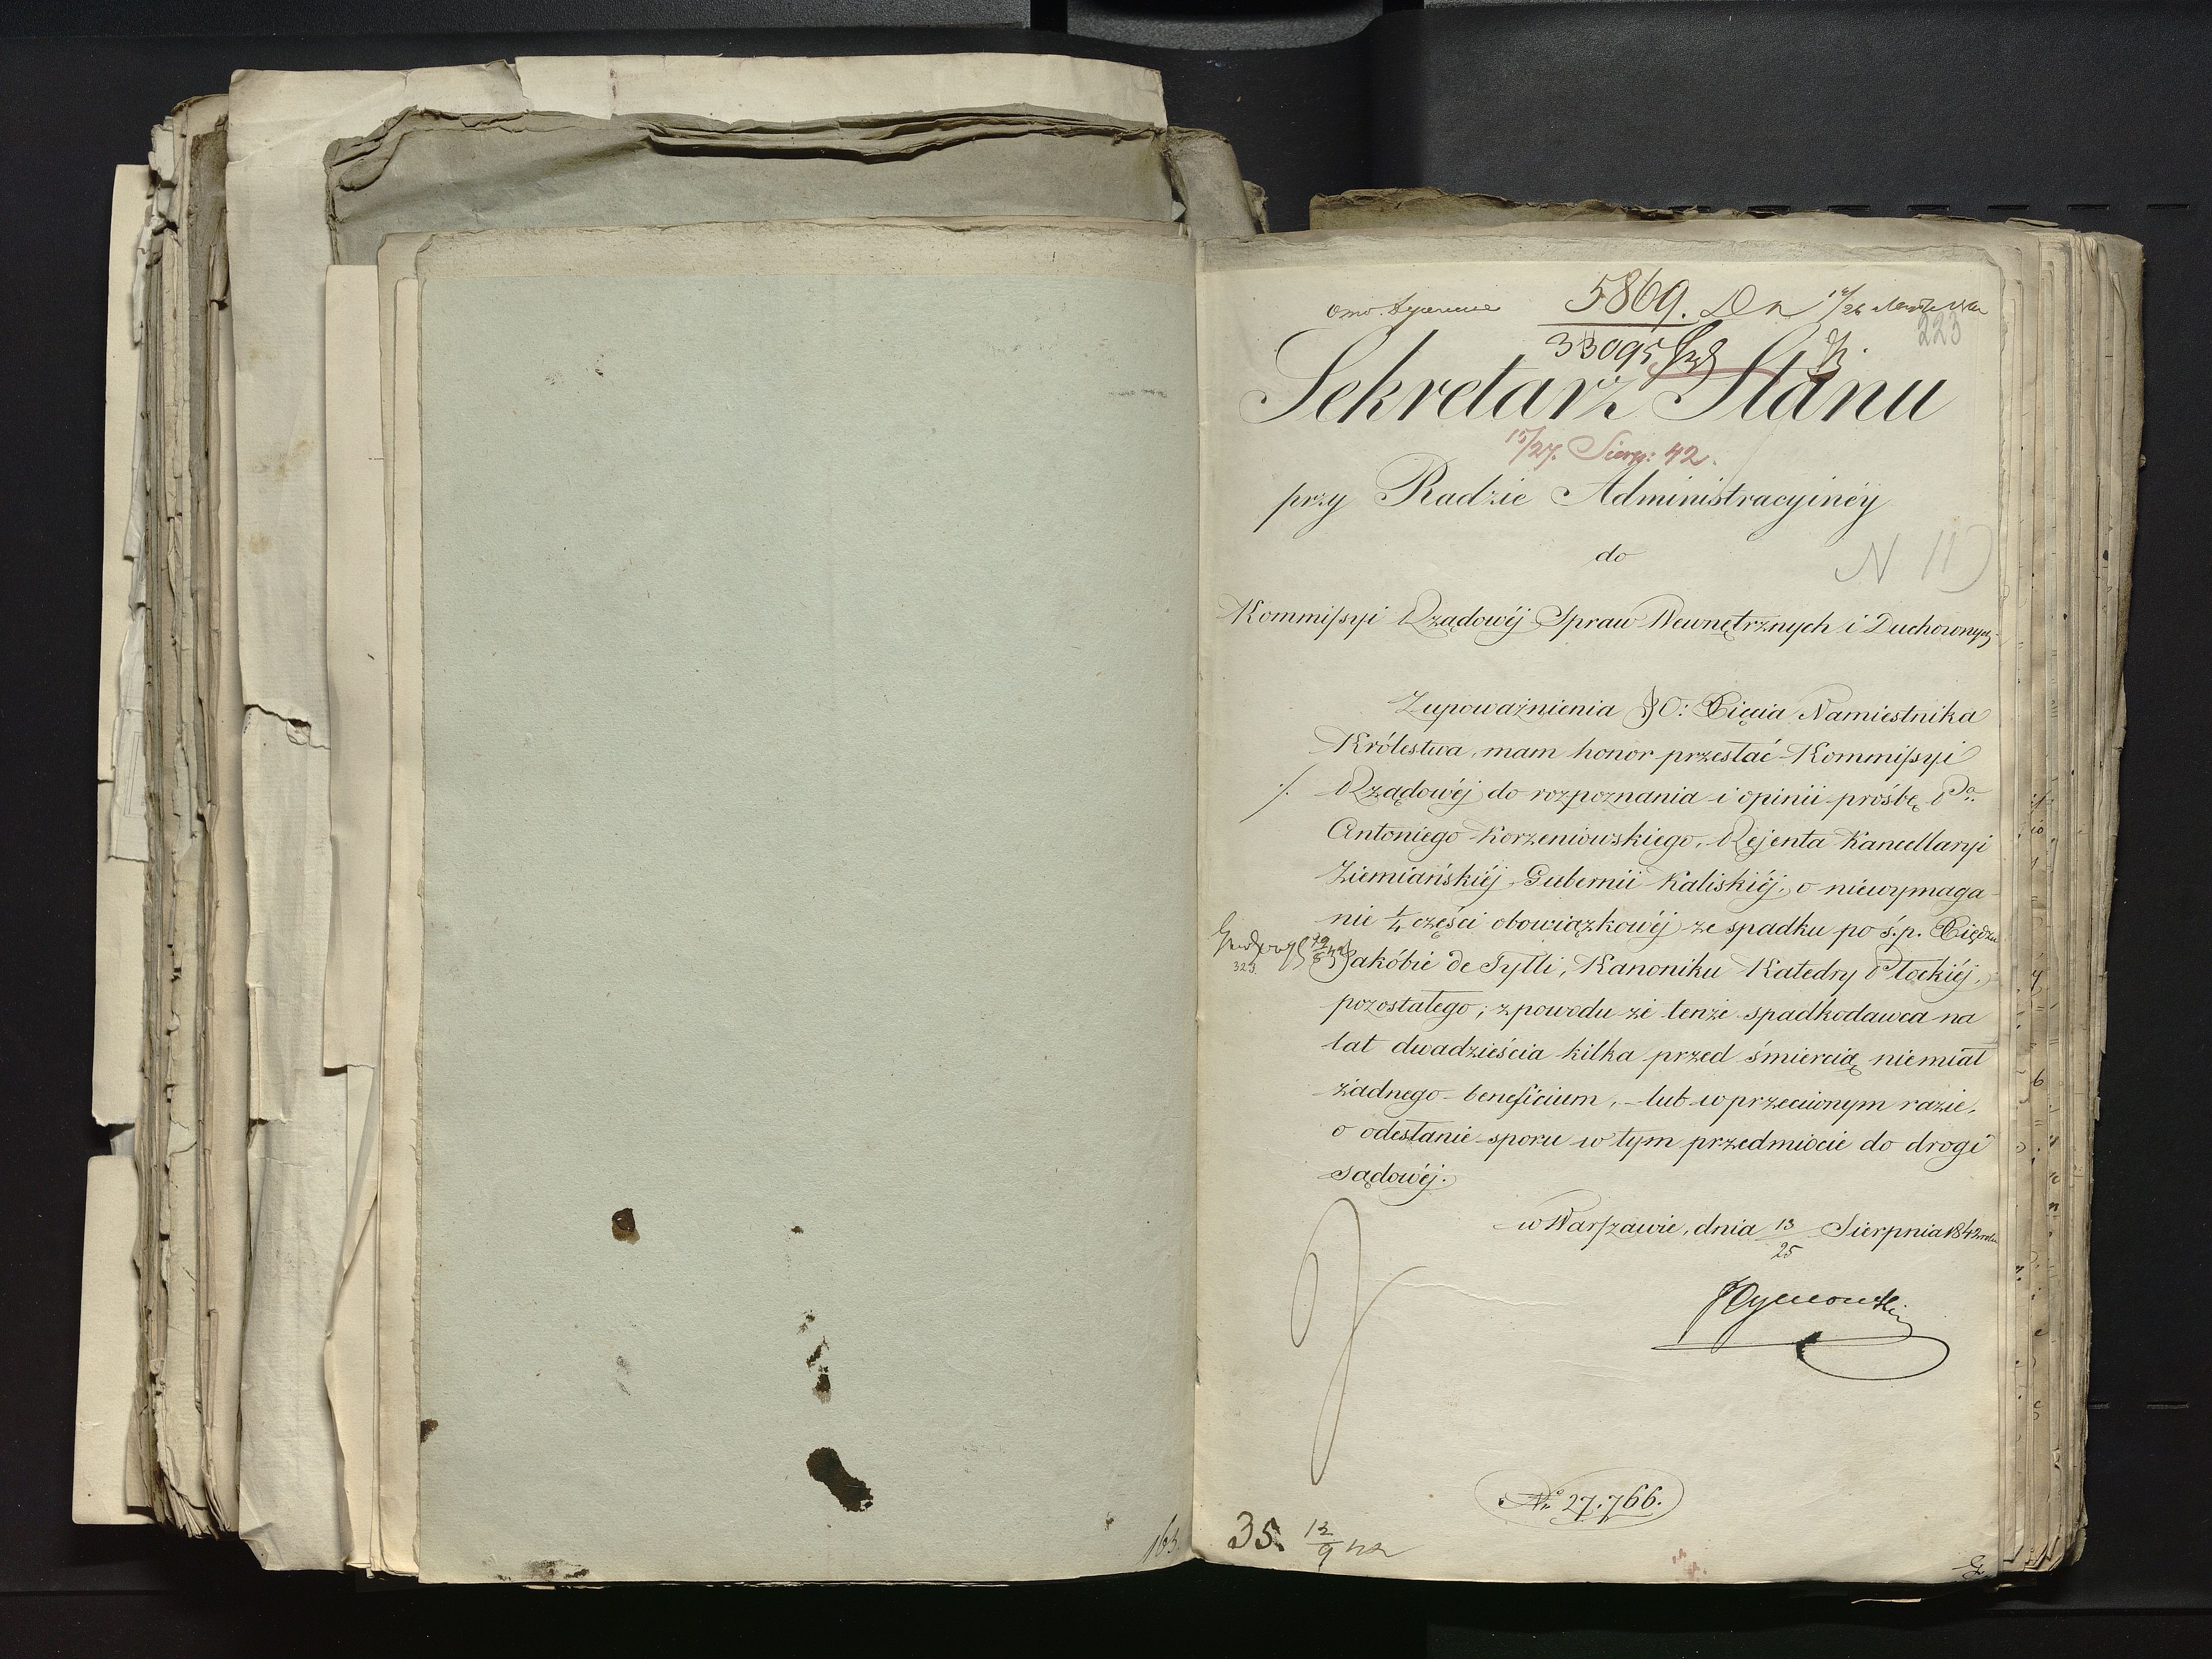 5869. Dn 14/26
33095
223
Sekretarz Stanu
15/27. Sierp: 42.
przy Radzie Administracyinéy
do
N 11)
Kommissyi Rządowéj Spraw Wewnętrznych i Duchownych
Z upoważnienia JO: Xięcia Namiestnika
Królestwa, mam honor przesłać Kommissyi
./. Rządowéj do rozpoznania i opinii prośbę Pa
Antoniego Korzeniowskiego, Rejenta Kancellaryi
Ziemiańskiéj Gubernii Kaliskiéj, o niewymaga-
nie 1/4 części obowiązkowéj ze spadku po ś.p. Xiędzu
323.
Jakóbie de Tylli, Kanoniku Katedry Płockiéj,
pozostałego; z powodu że tenże spadkodawca na
lat dwadzieścia kilka przed śmiercią niemiał
żadnego beneficium, – lub w przeciwnym razie,
o odesłanie sporu w tym przedmiocie do drogi
sądowéj.
w Warszawie, dnia 13/25 Sierpnia 1842 roku
No 27.766.
35. 12/9 42
163.